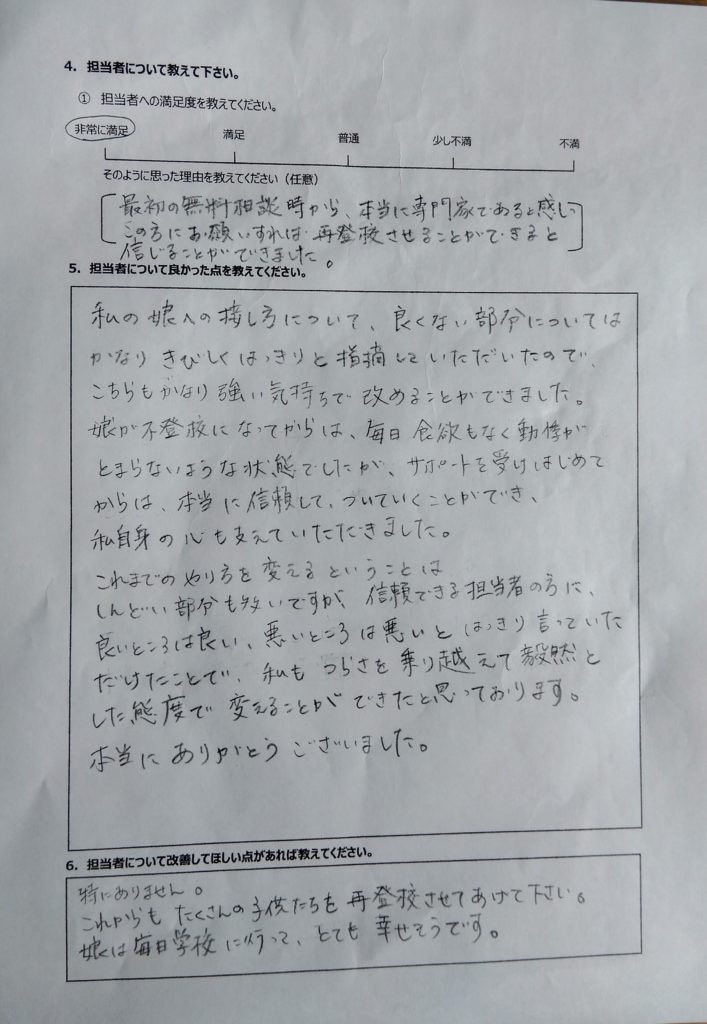 4. 担当者について教えて下さい。
① 担当者への満足度を教えてください。
非常に満足 満足 普通 少し不満 不満
そのように思った理由を教えてください（任意）
最初の無料相談時から、本当に専門家であると感じ
この方にお願いすれば再登校させることができると
信じることができました。
5. 担当者について良かった点を教えてください。
私の娘への接し方について、良くない部分については
かなりきびしくはっきりと指摘していただいたので、
こちらもかなり強い気持ちで改めることができました。
娘が不登校になってからは、毎日食欲もなく動悸が
とまらないような状態でしたが、サポートを受けはじめて
からは、本当に信頼して、ついていくことができ、
私自身の心も支えていただきました。
これまでのやり方を変えるということは
しんどい部分も多いですが、信頼できる担当者の方に、
良いところは良い、悪いところは悪いとはっきり言っていた
だけたことで、私もつらさを乗り越えて毅然と
した態度で変えることができたと思っております。
本当にありがとうございました。
6. 担当者について改善してほしい点があれば教えてください。
特にありません。
これからもたくさんの子供たちを再登校させてあげて下さい。
娘は毎日学校に行って、とても幸せそうです。